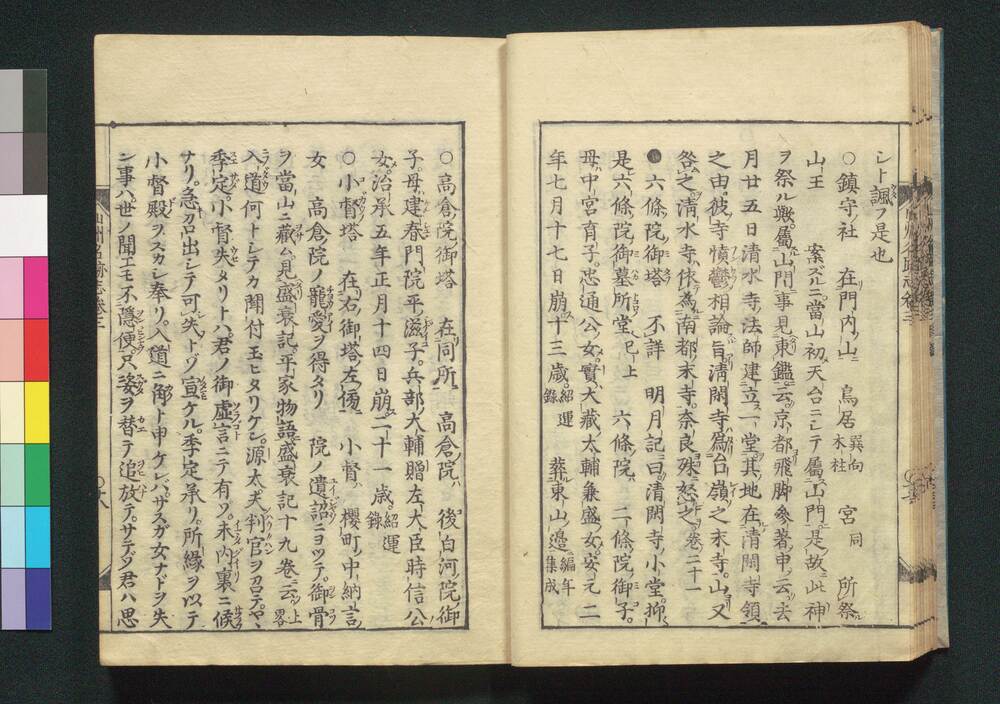 シト諷フ是也
○鎮守ノ社 在門内ノ山ニ 鳥居巽向木柱 宮同 所祭ル
山王 案ズルニ當山初メ天台ニシテ屬山門ニ是故ニ此神
ヲ祭ル歟屬山門ニ事見東鑑ニ云京都ノ飛脚參著申云去
月廿五日清水寺ノ法師建立一堂其地在清閑寺領
之由彼寺憤鬱相論ノ旨清閑寺ハ爲台嶺之末寺山又
咎之清水寺依爲南都ノ末寺奈良殊ニ怒之巻二十一
●六條院御塔 不詳 明月記曰清閑寺ノ小堂抑
是六條院御墓所堂已上 六條院ハ二條院ノ御子
母ハ中宮育子忠通公ノ女實ハ大藏大輔兼盛女安元二
年七月十七日崩ス十三歳紹運錄 葬東山ノ邊編年集成
○高倉院御塔 在同所 高倉院ハ後白河院ノ御
子母ハ建春門院平滋子兵部大輔贈左大臣時信公ノ
女治承五年正月十四日崩二十一歳紹運錄
○小督塔 在右御塔左傍ニ 小督ハ櫻町ノ中納言ノ
女 高倉院ノ寵愛ヲ得タリ 院ノ遺詔ニヨツテ御骨
ヲ當山ニ藏ム見盛衰記平家物語盛衰記十九巻云上畧
入道何トシテカ聞付玉ヒタリケン源太夫判官ヲ召テヤヽ
季定小督失タリトハ君ノ御虚言ニテ有ゾ未内裏ニ候
ナリ急召出シテ可失トゾ宣ケル季定承リ所縁ヲ以テ
小督殿ヲスカシ奉リ入道ニ角ト申ケレバサスガ女ナドヲ失
ン事ハ世ノ聞エモ不隱便トテ姿ヲ替テ追放テサテゾ君ハ思
山州名跡志巻三